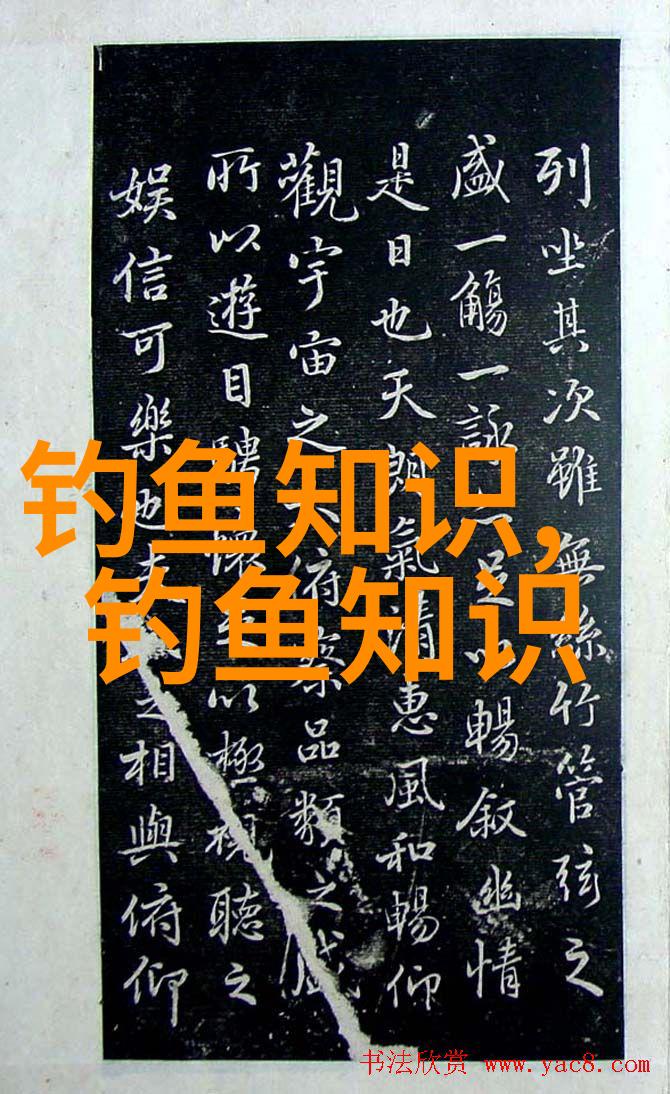 列坐其次雖無絲竹管弦之
盛一觴一詠亦足以暢叙幽情
是日也天朗氣清惠風和暢仰
觀宇宙之大俯察品類之盛
所以遊目騁懷足以極視聽之
娛信可樂也夫之相與俯仰
钓鱼知识,
钓鱼知识
书法欣赏 www.yac8.com